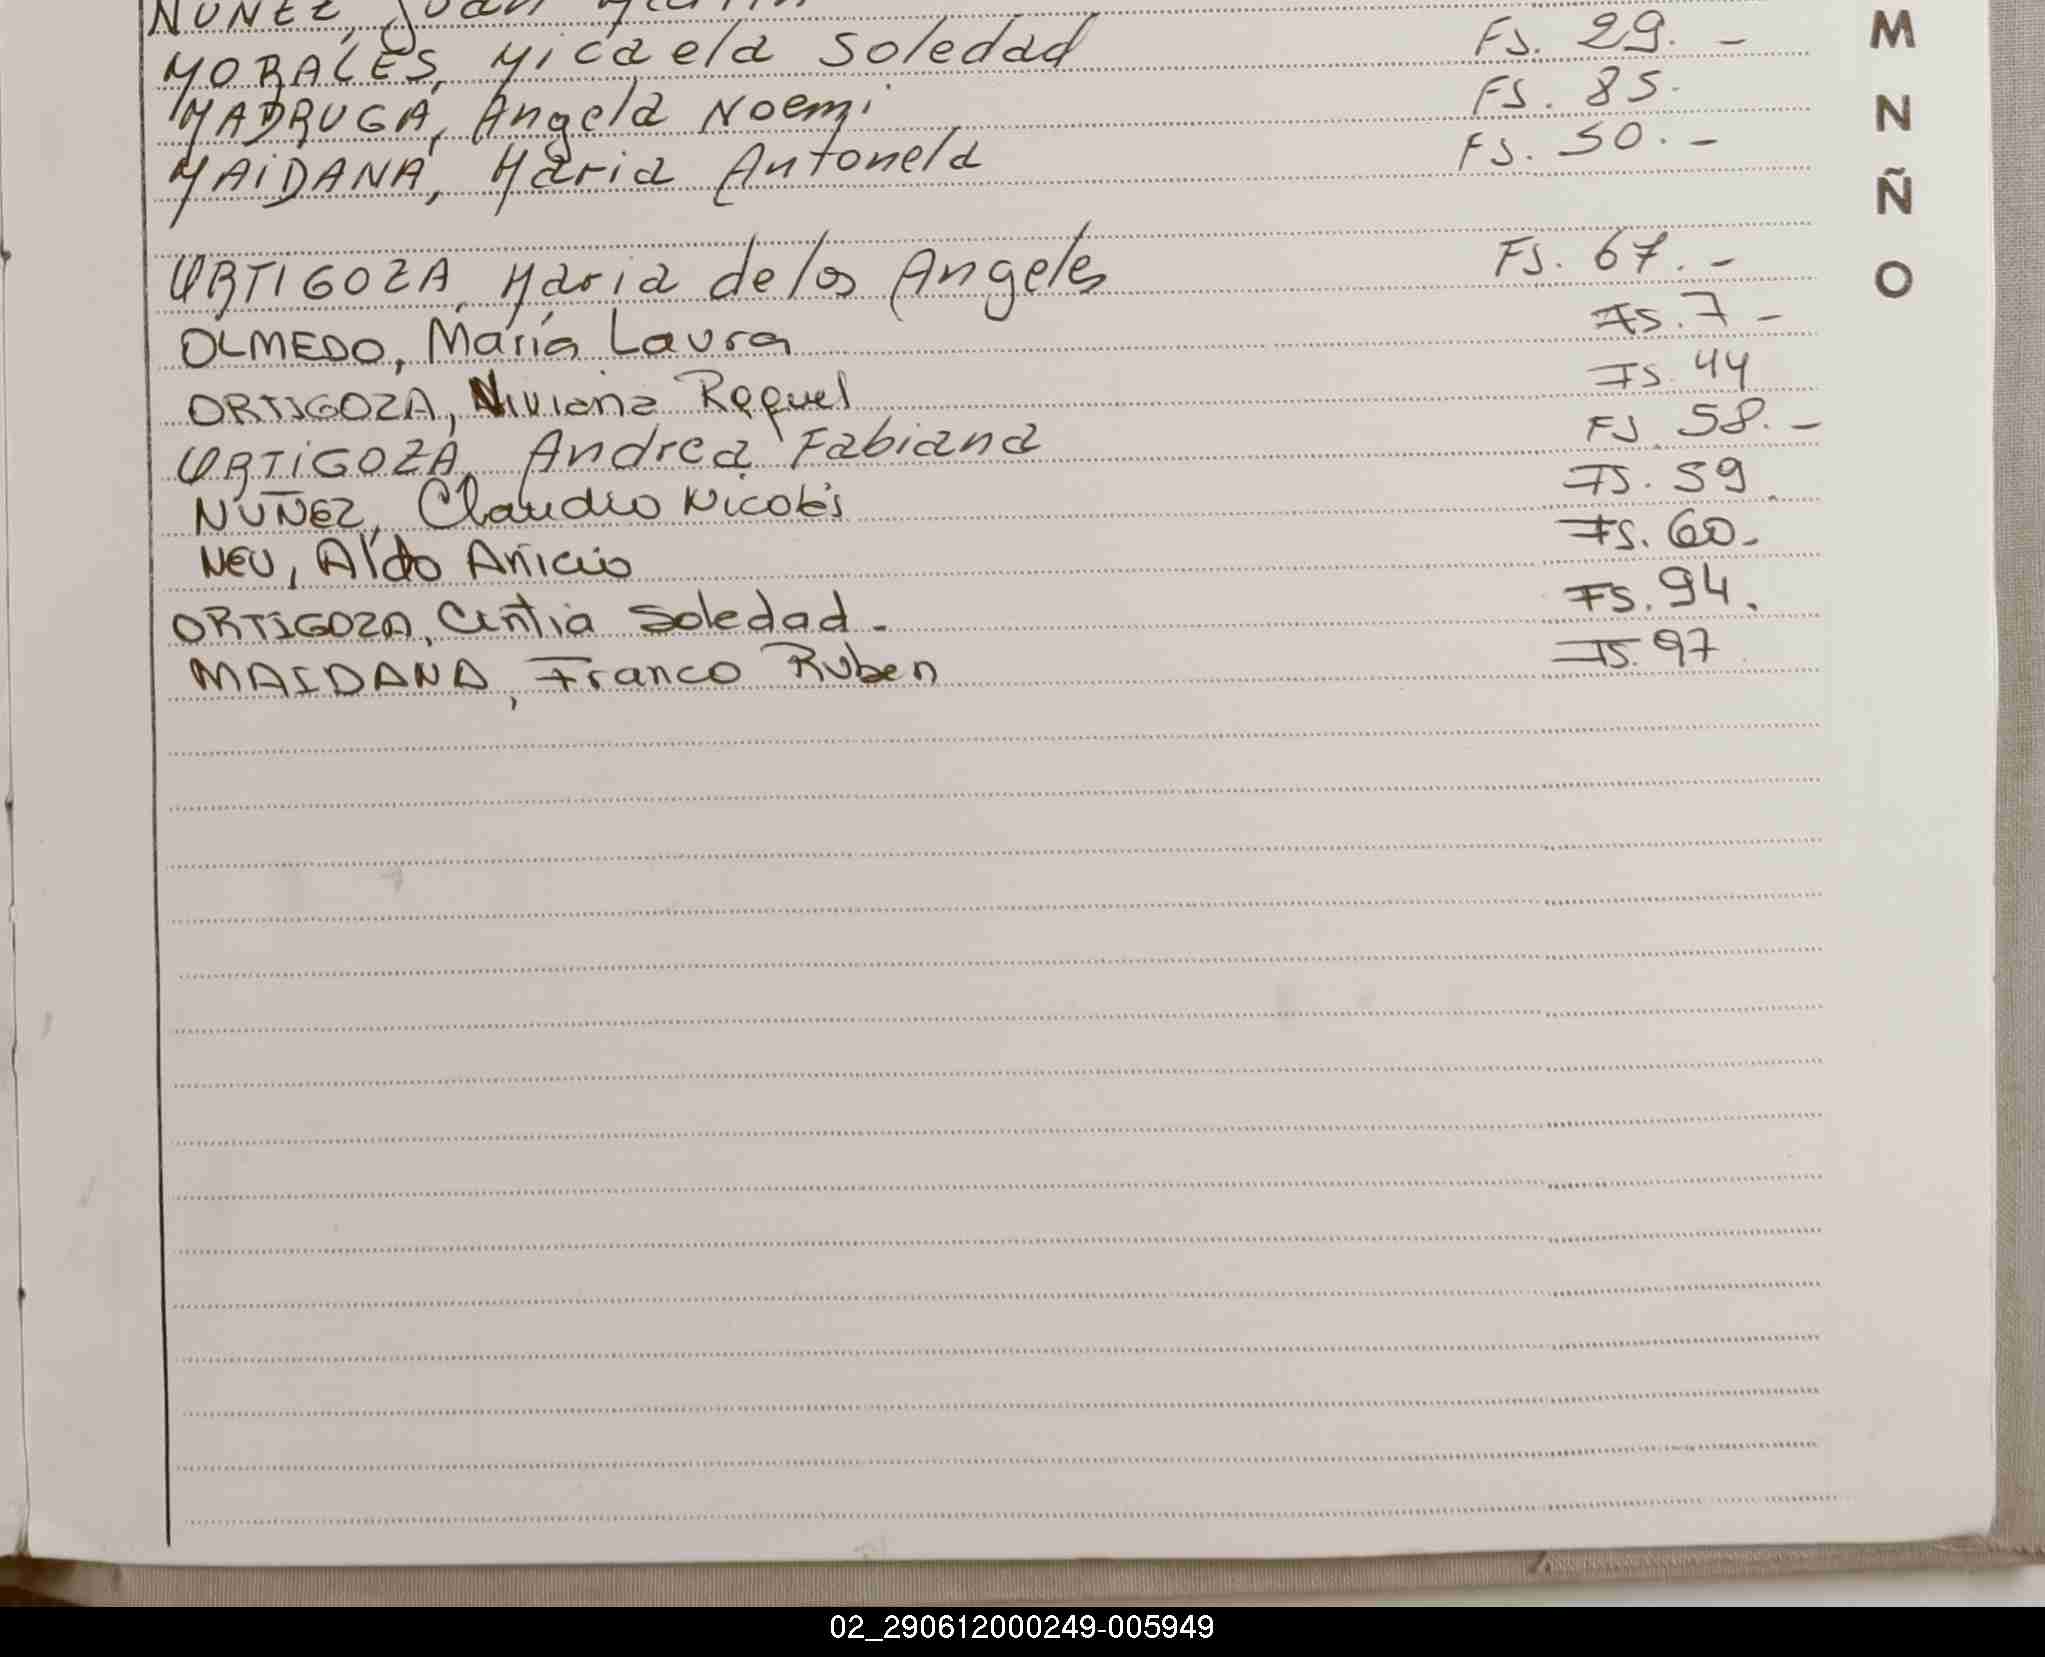 NUÑEZ, Juan
MORALES, Micaela Soledad Fs. 29.-
MADRUGA, Angela Noemi Fs. 85.
MAIDANA, Maria Antonela Fs. 50.-
ORTIGOZA, Maria de los Angeles Fs. 67.-
OLMEDO, María Laura Fs. 7-
ORTIGOZA, Niviana Raquel Fs. 44
ORTIGOZA, Andrea Fabiana Fs. 58.-
NUÑEZ, Claudio Nicolás Fs. 59.
NEU, Aldo Anicio Fs. 60-
ORTIGOZA, Cintia Soledad.- Fs. 94.
MAIDANA, Franco Ruben Fs. 97
M
N
Ñ
O
02_290612000249-005949